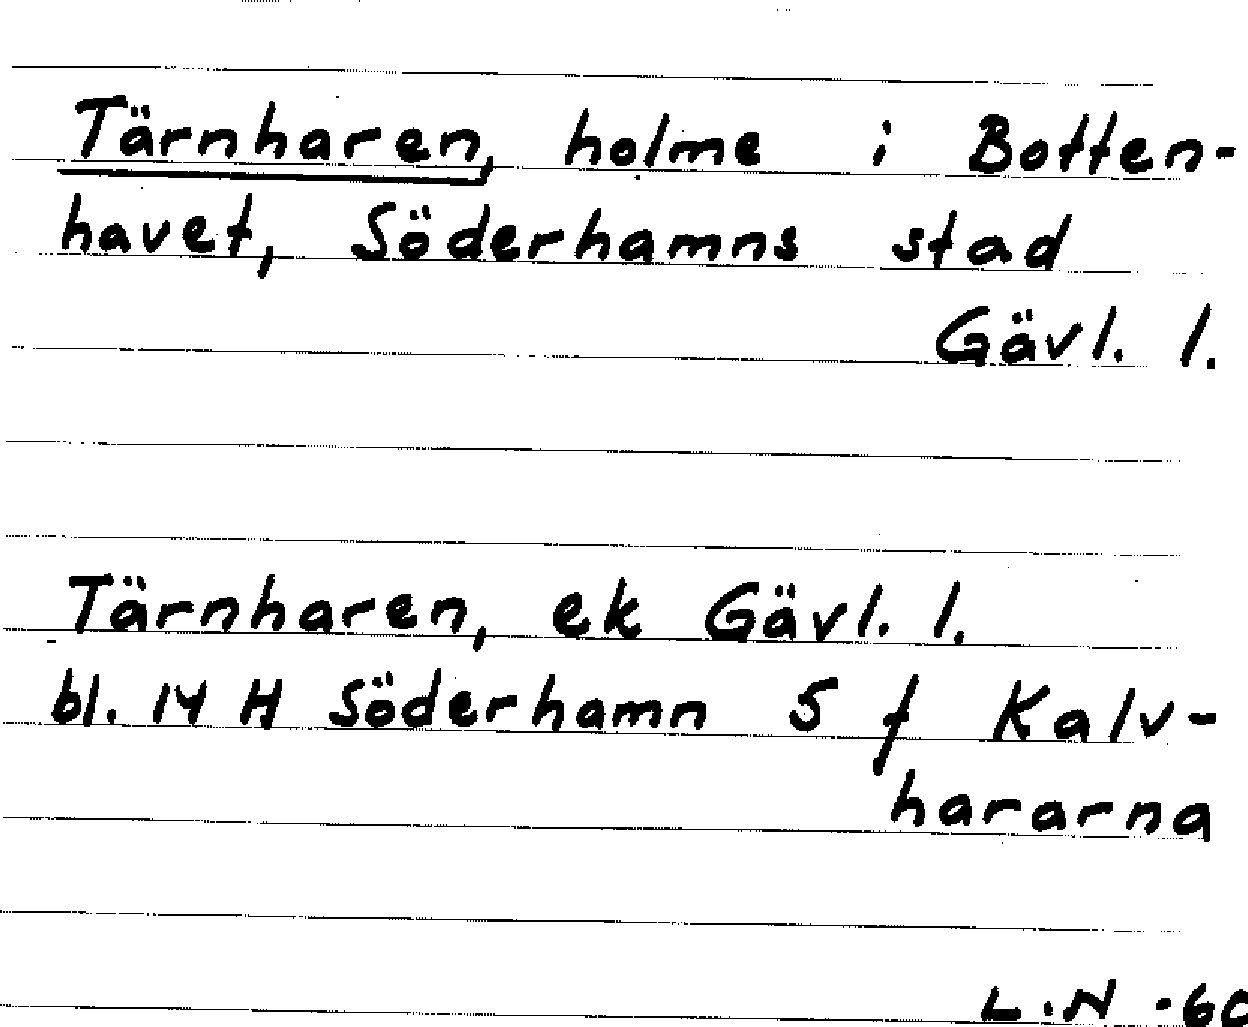 Tärnharen, holme i Botten-
havet, Söderhamns stad
Gävl. l.
Tärnharen, ek Gävl. l.
bl. 14 H Söderhamn S f Kalv-
hararna
L.N -60